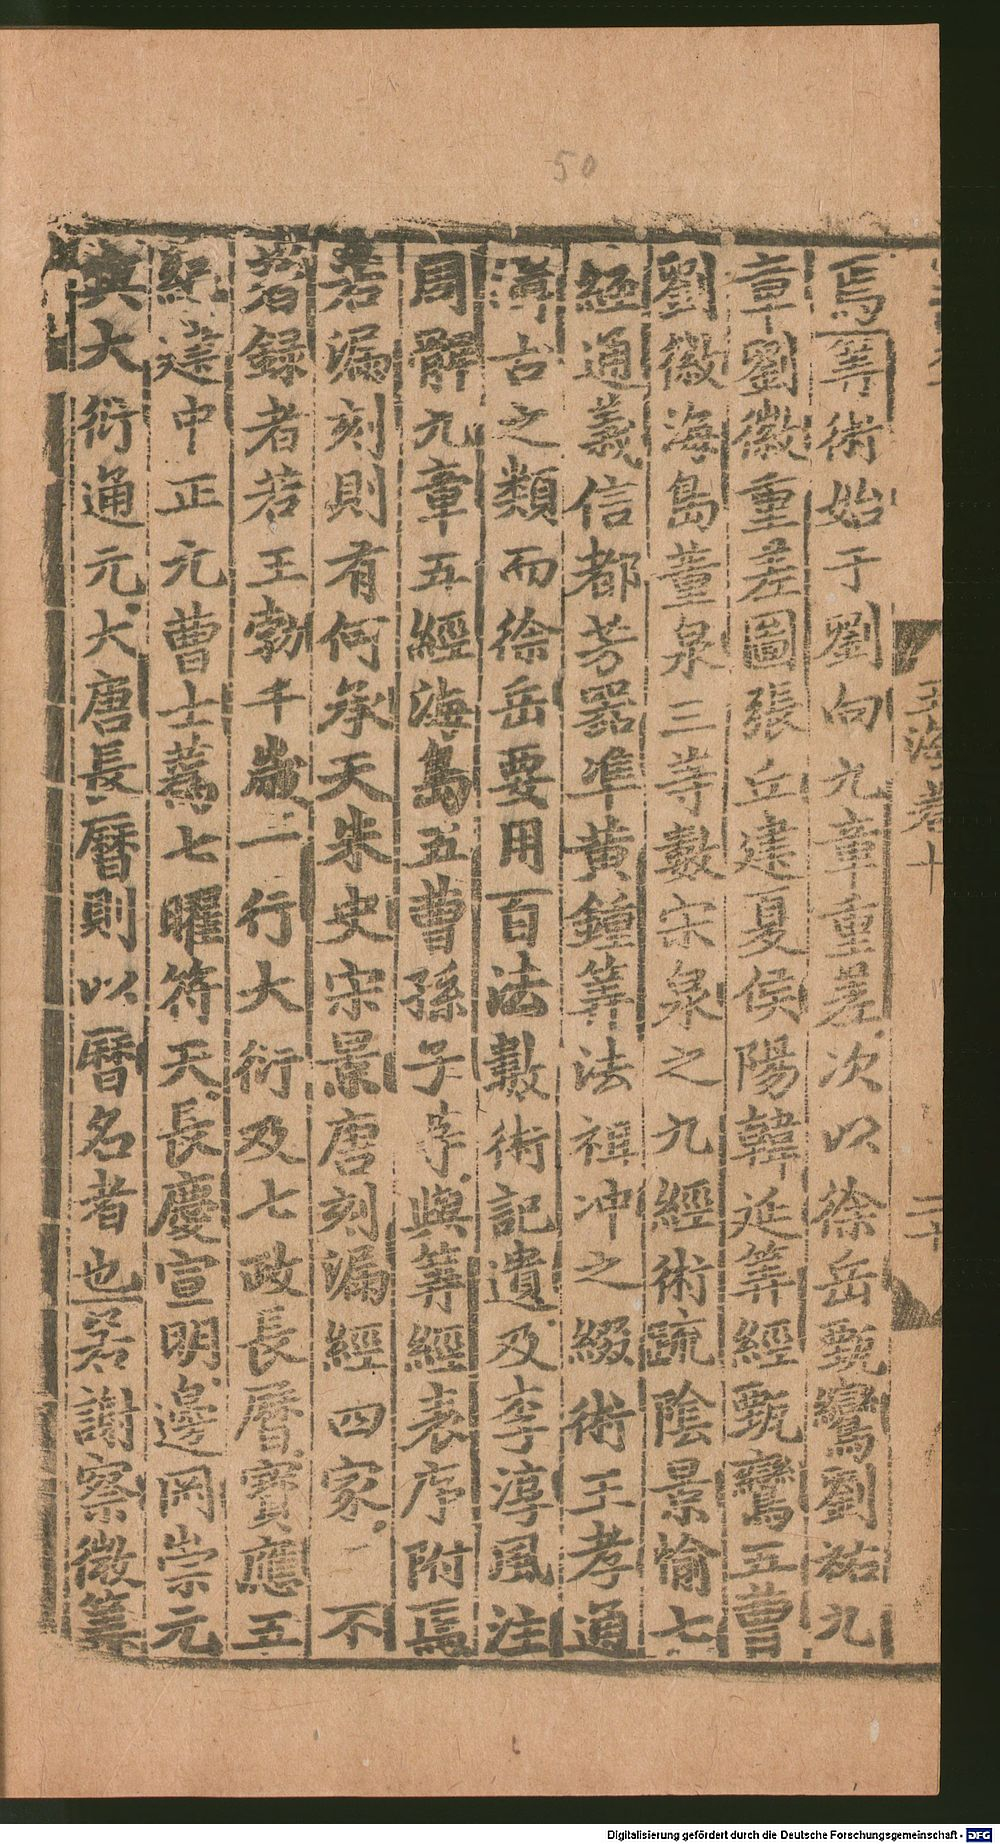 50
焉筭術始于劉向九章重差次以徐岳甄鸞劉祐九
章劉徽重差圖張丘建夏侯陽韓延筭經甄鸞五曹
劉徽海島董泉三等數宋泉之九經術疏陰景愉七
經通義信都芳器準黃鐘筭法祖冲之綴術王孝通
緝古之類而徐岳要用百法數術記遺及李淳風注
周髀九章五經海島五曹孫子等與筭經表序附焉
若漏刻則有何承天朱史宋景唐刻漏經四家不
著錄者若王勃千歲一行大衍及七政長曆寶應五
紀建中正元曹士蔿七曜符天長慶宣明邊岡崇元
與大衍通元大唐長曆則以曆名者也若謝察微筭
玉海卷十
二十
Digitalisierung gefördert durch die Deutsche Forschungsgemeinschaft - DFG